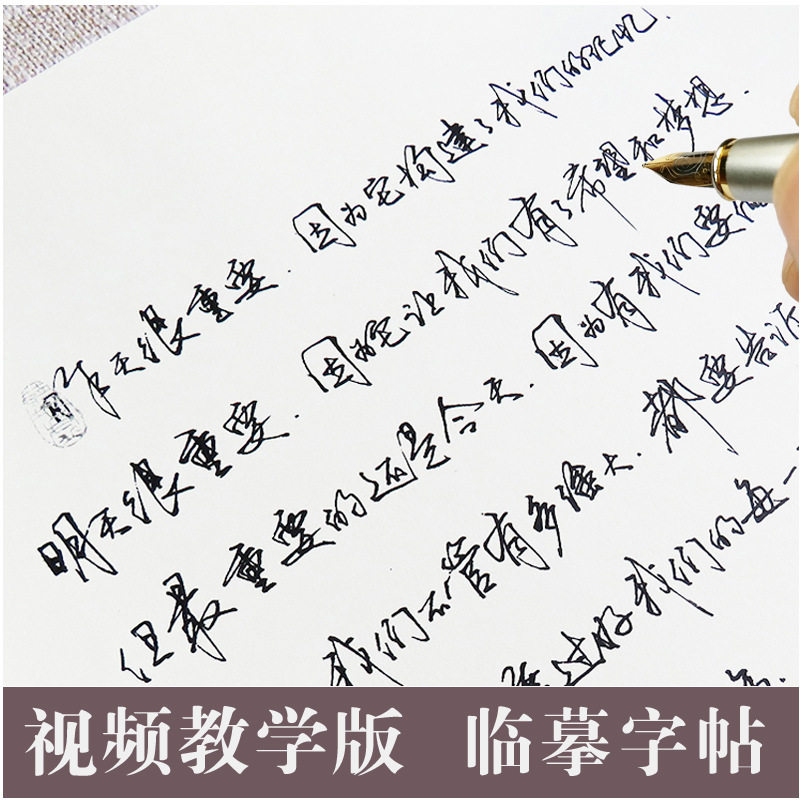 昨天很重要.因为它构建了我们的记忆.
明天很重要.因为它让我们有了希望和梦想.
但最重要的还是今天.因为有我们要
我们不管有多强大.都要告诉
过好我们的每一
视频教学版 临摹字帖